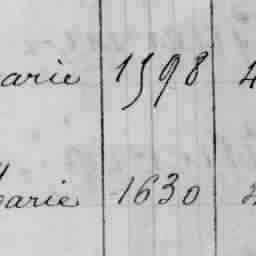 arie 1598 4
arie 1630